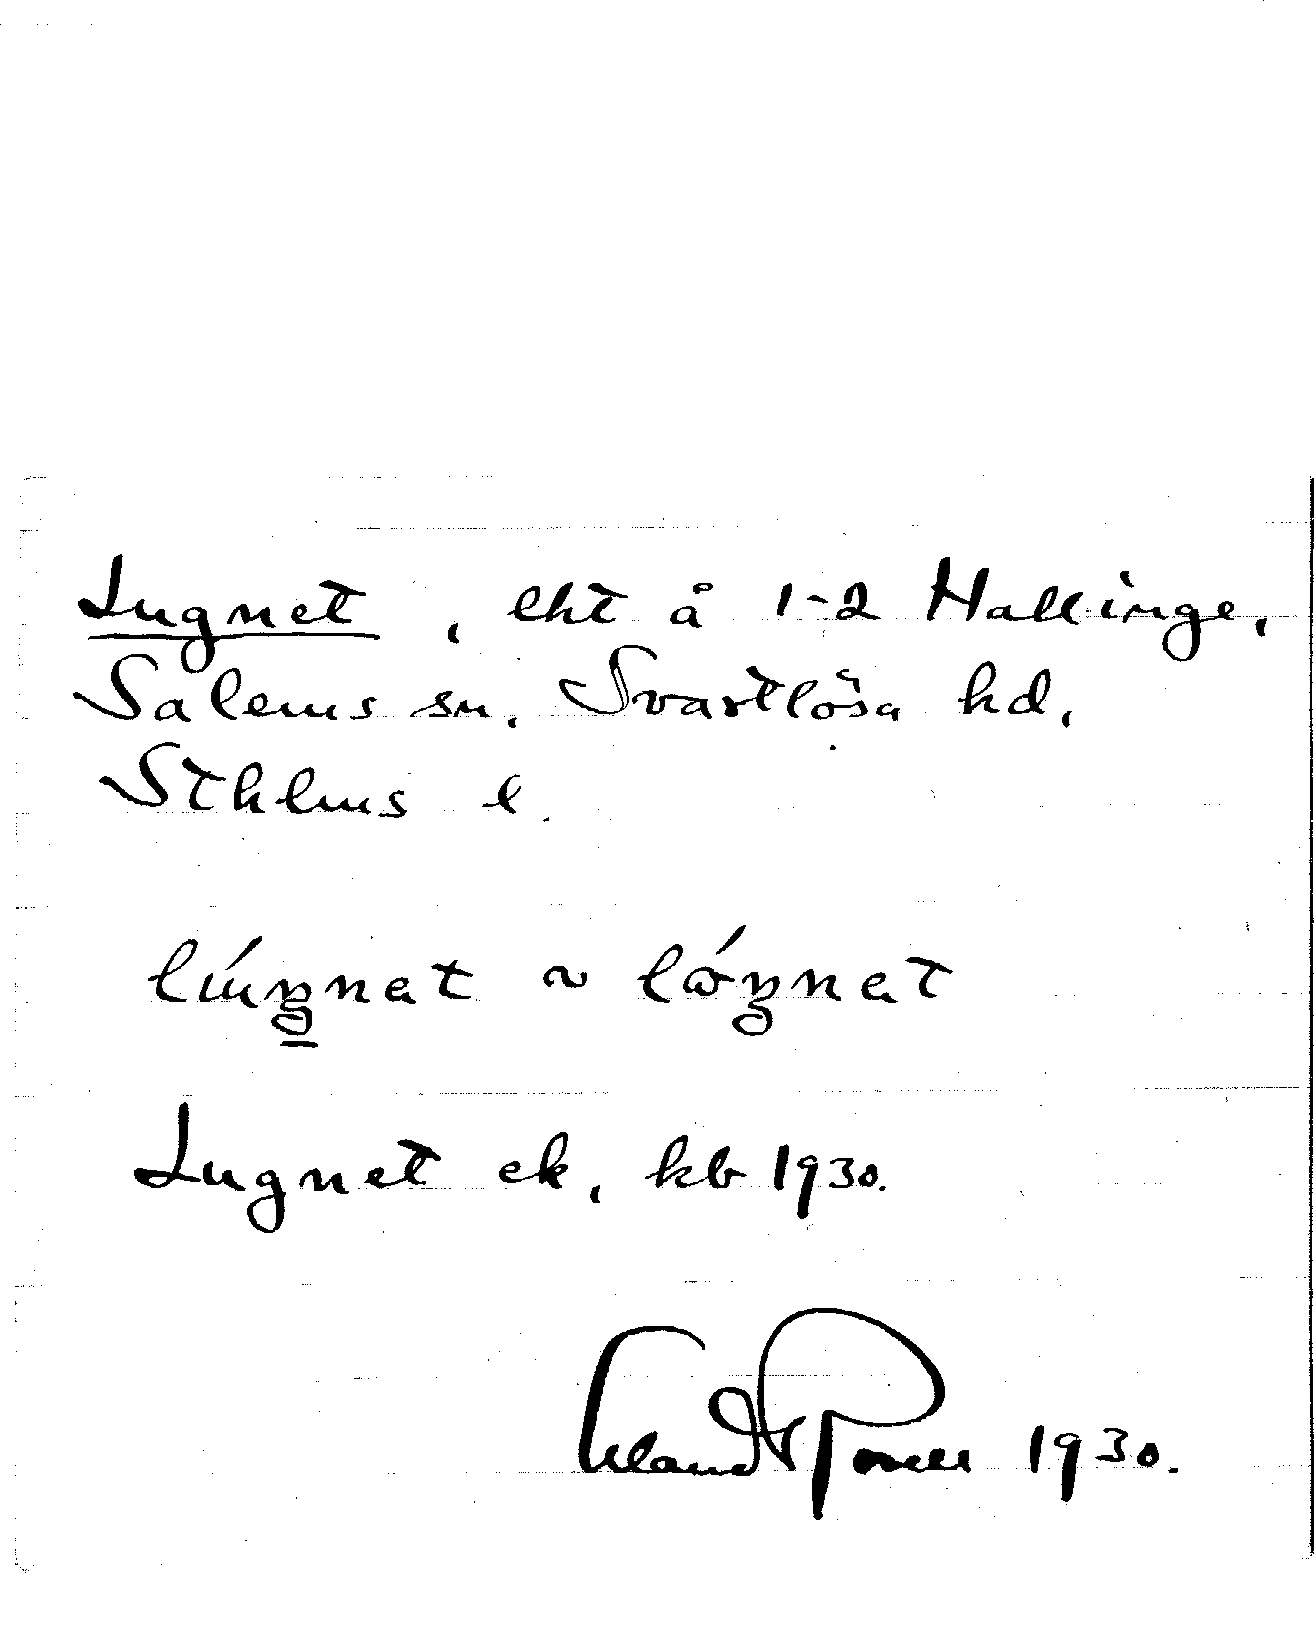 Lugnet, lht å 1-2 Hallinge,
Salems sn, Svartlösa hd,
Sthlms l.
lúŋnat ~ lóŋnat
Lugnet ek, kb 1930.
Erland Rosell 1930.